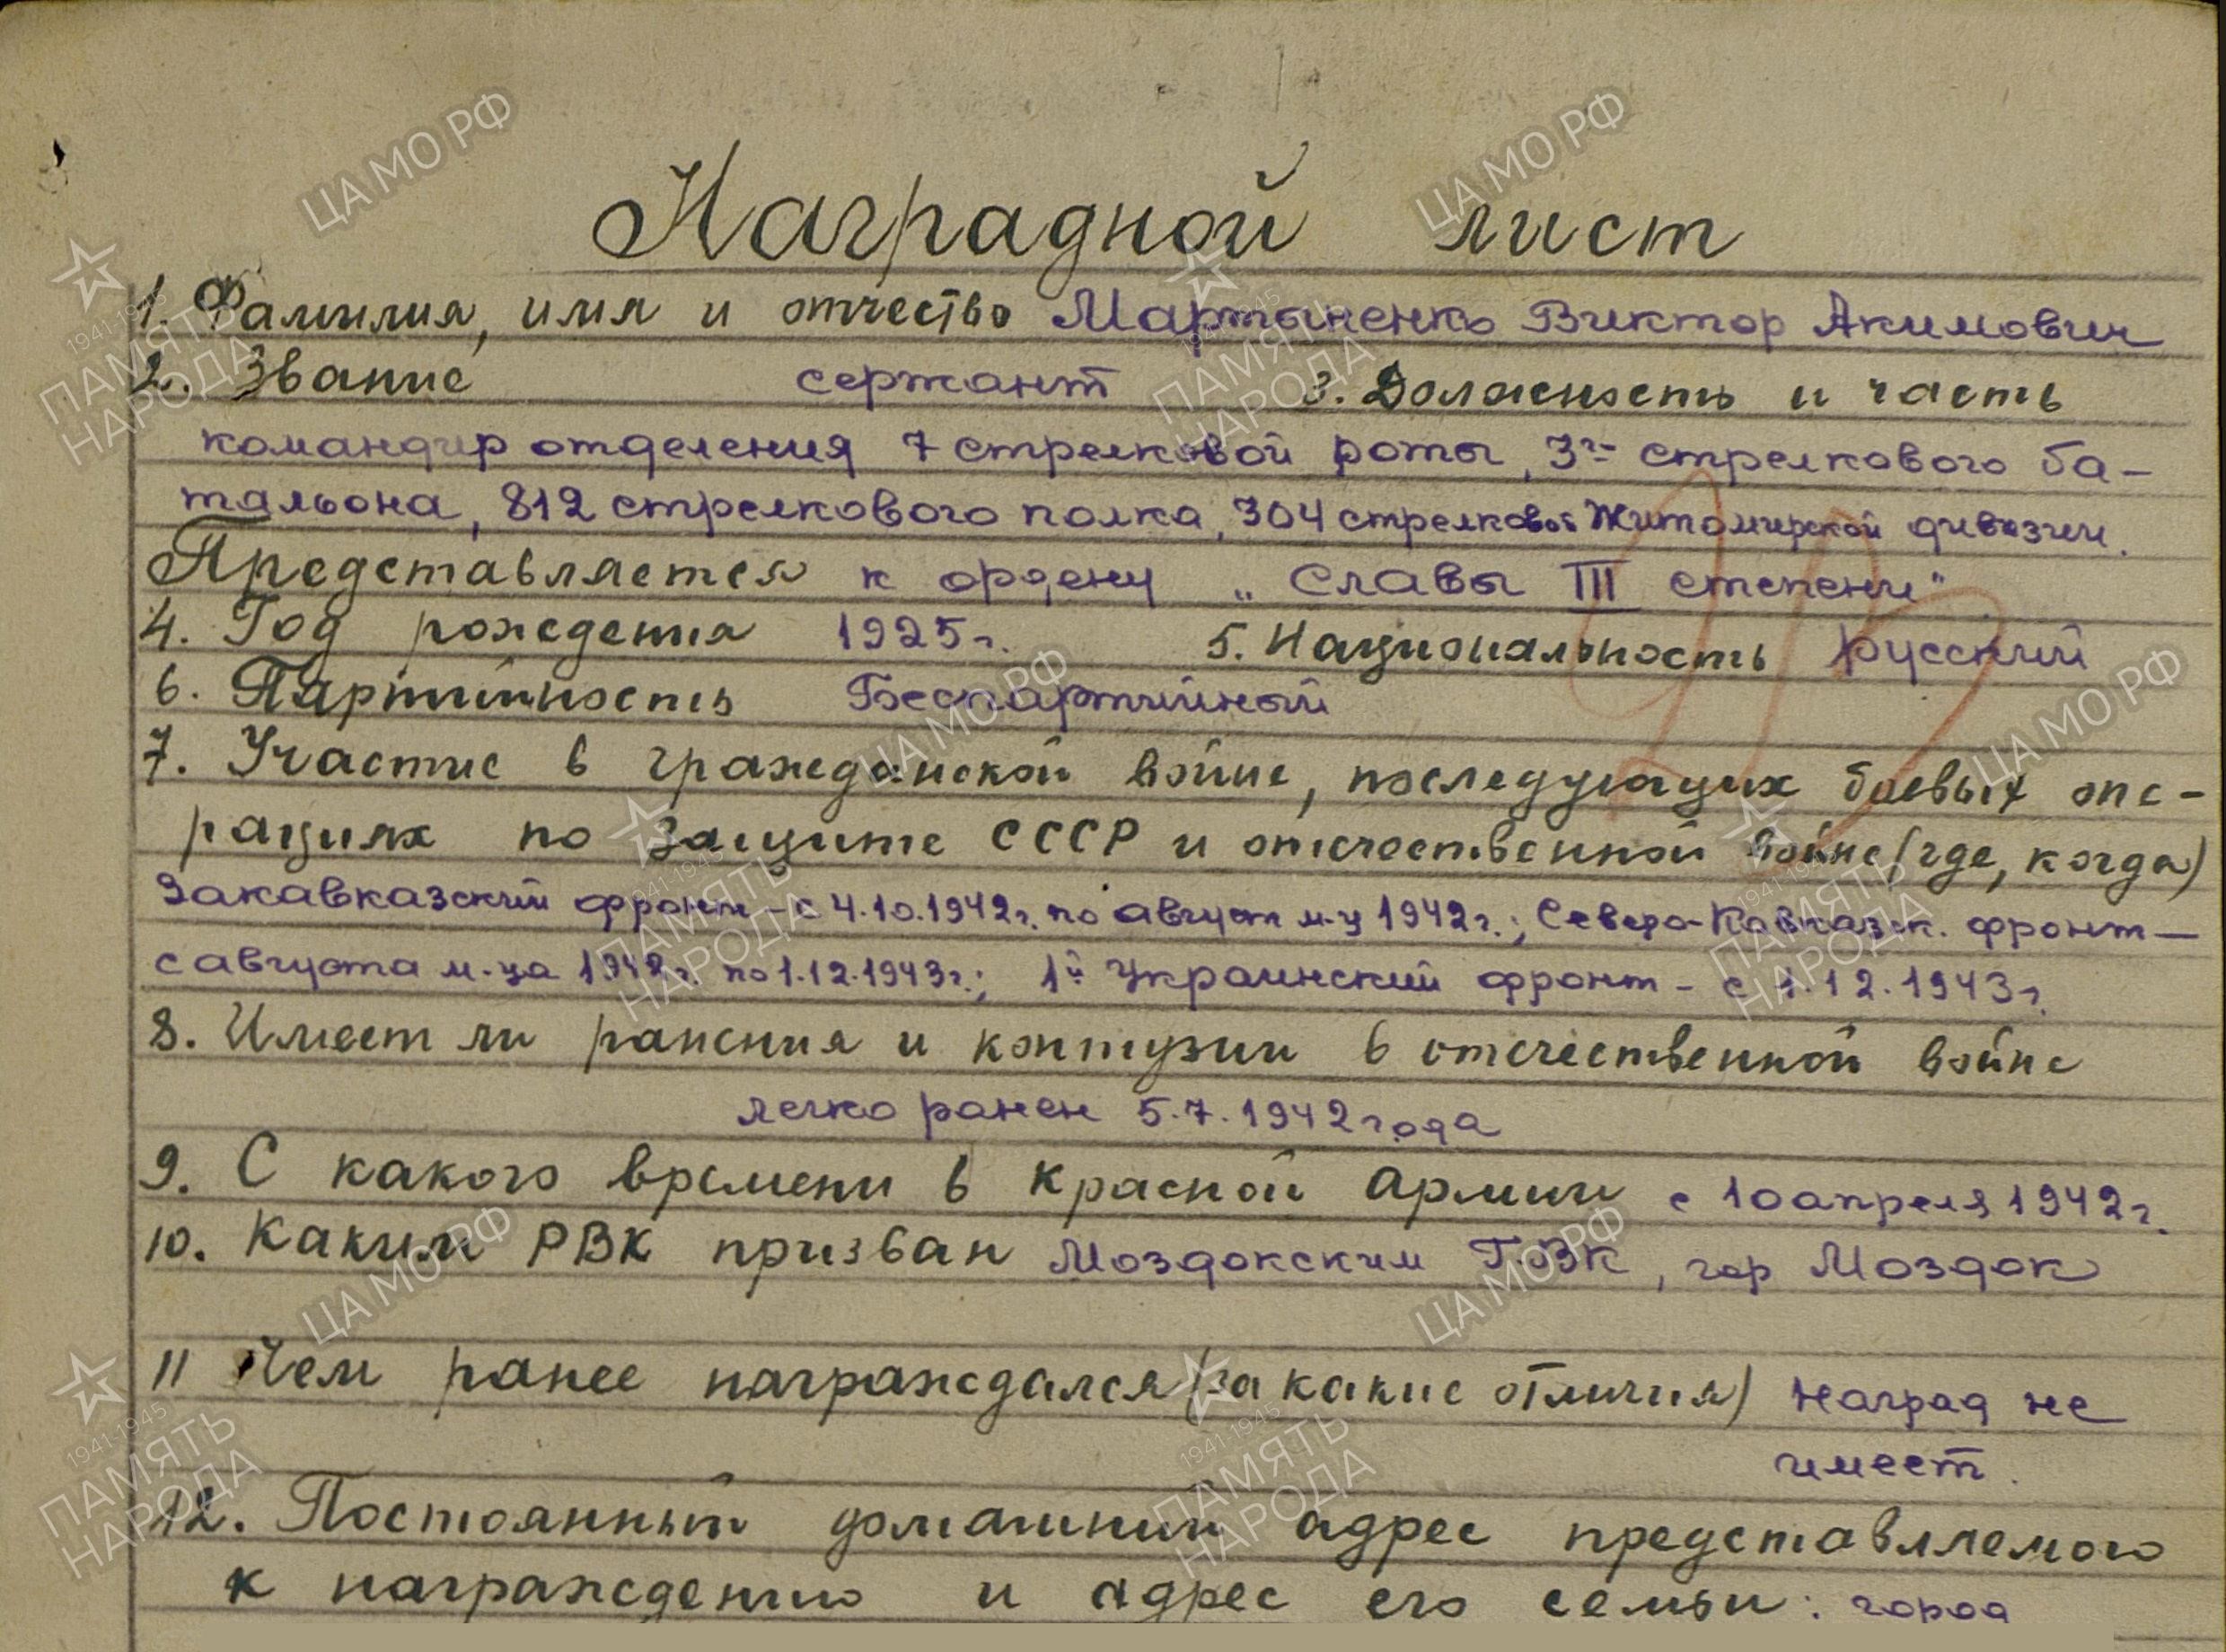 Наградной лист
1. Фамилия, имя и отчество Мартыненко Виктор Акимович
2. Звание сержант 3. Должность и часть
командир отделения 7 стрелковой роты, 3го стрелкового ба-
тальона, 812 стрелкового полка, 304 стрелковой Житомирской дивизии.
Представляется к ордену „Славы III степени"
4. Год рождения 1925г. 5. Национальность русский
6. Партийность Беспартийный
7. Участие в гражданской войне, последующих боевых опе-
рациях по защите СССР и отечественной войне (где, когда)
Закавказский фронт - с 4.10.1942г. по август м-ц 1942г.; Северо-Кавказск. фронт—
с августа м-ца 1942г. по 1.12.1943г.; 1й Украинский фронт - с 1.12.1943г.
8. Имеет ли ранения и контузии в отечественной войне
легко ранен 5.7.1942 года
9. С какого времени в Красной Армии с 10 апреля 1942г.
10. Каким РВК призван Моздокским ГВК, гор Моздок
11 Чем ранее награждался (за какие отличия) наград не
имеет.
12. Постоянный домашний адрес представляемого
к награждению и адрес его семьи: город
ЦА МО РФ
ЦА МО РФ
1941-1945
ПАМЯТЬ
НАРОДА
1941-1945
ПАМЯТЬ
НАРОДА
ЦА МО РФ
ЦА МО РФ
1941-1945
ПАМЯТЬ
НАРОДА
1941-1945
ПАМЯТЬ
НАРОДА
ЦА МО РФ
ЦА МО РФ
1941-1945
ПАМЯТЬ
НАРОДА
1941-1945
ПАМЯТЬ
НАРОДА